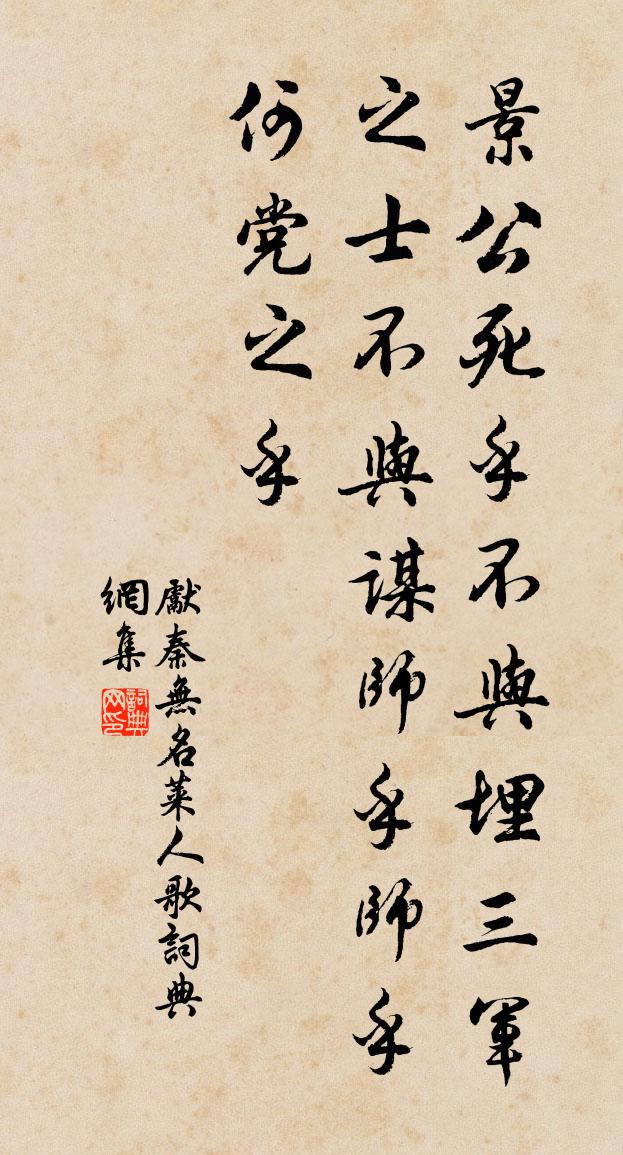 景公死乎不與埋三軍
之士不與謀師乎師乎
何党之乎
獻秦無名萊人歌詞典
網集
詞典
网印